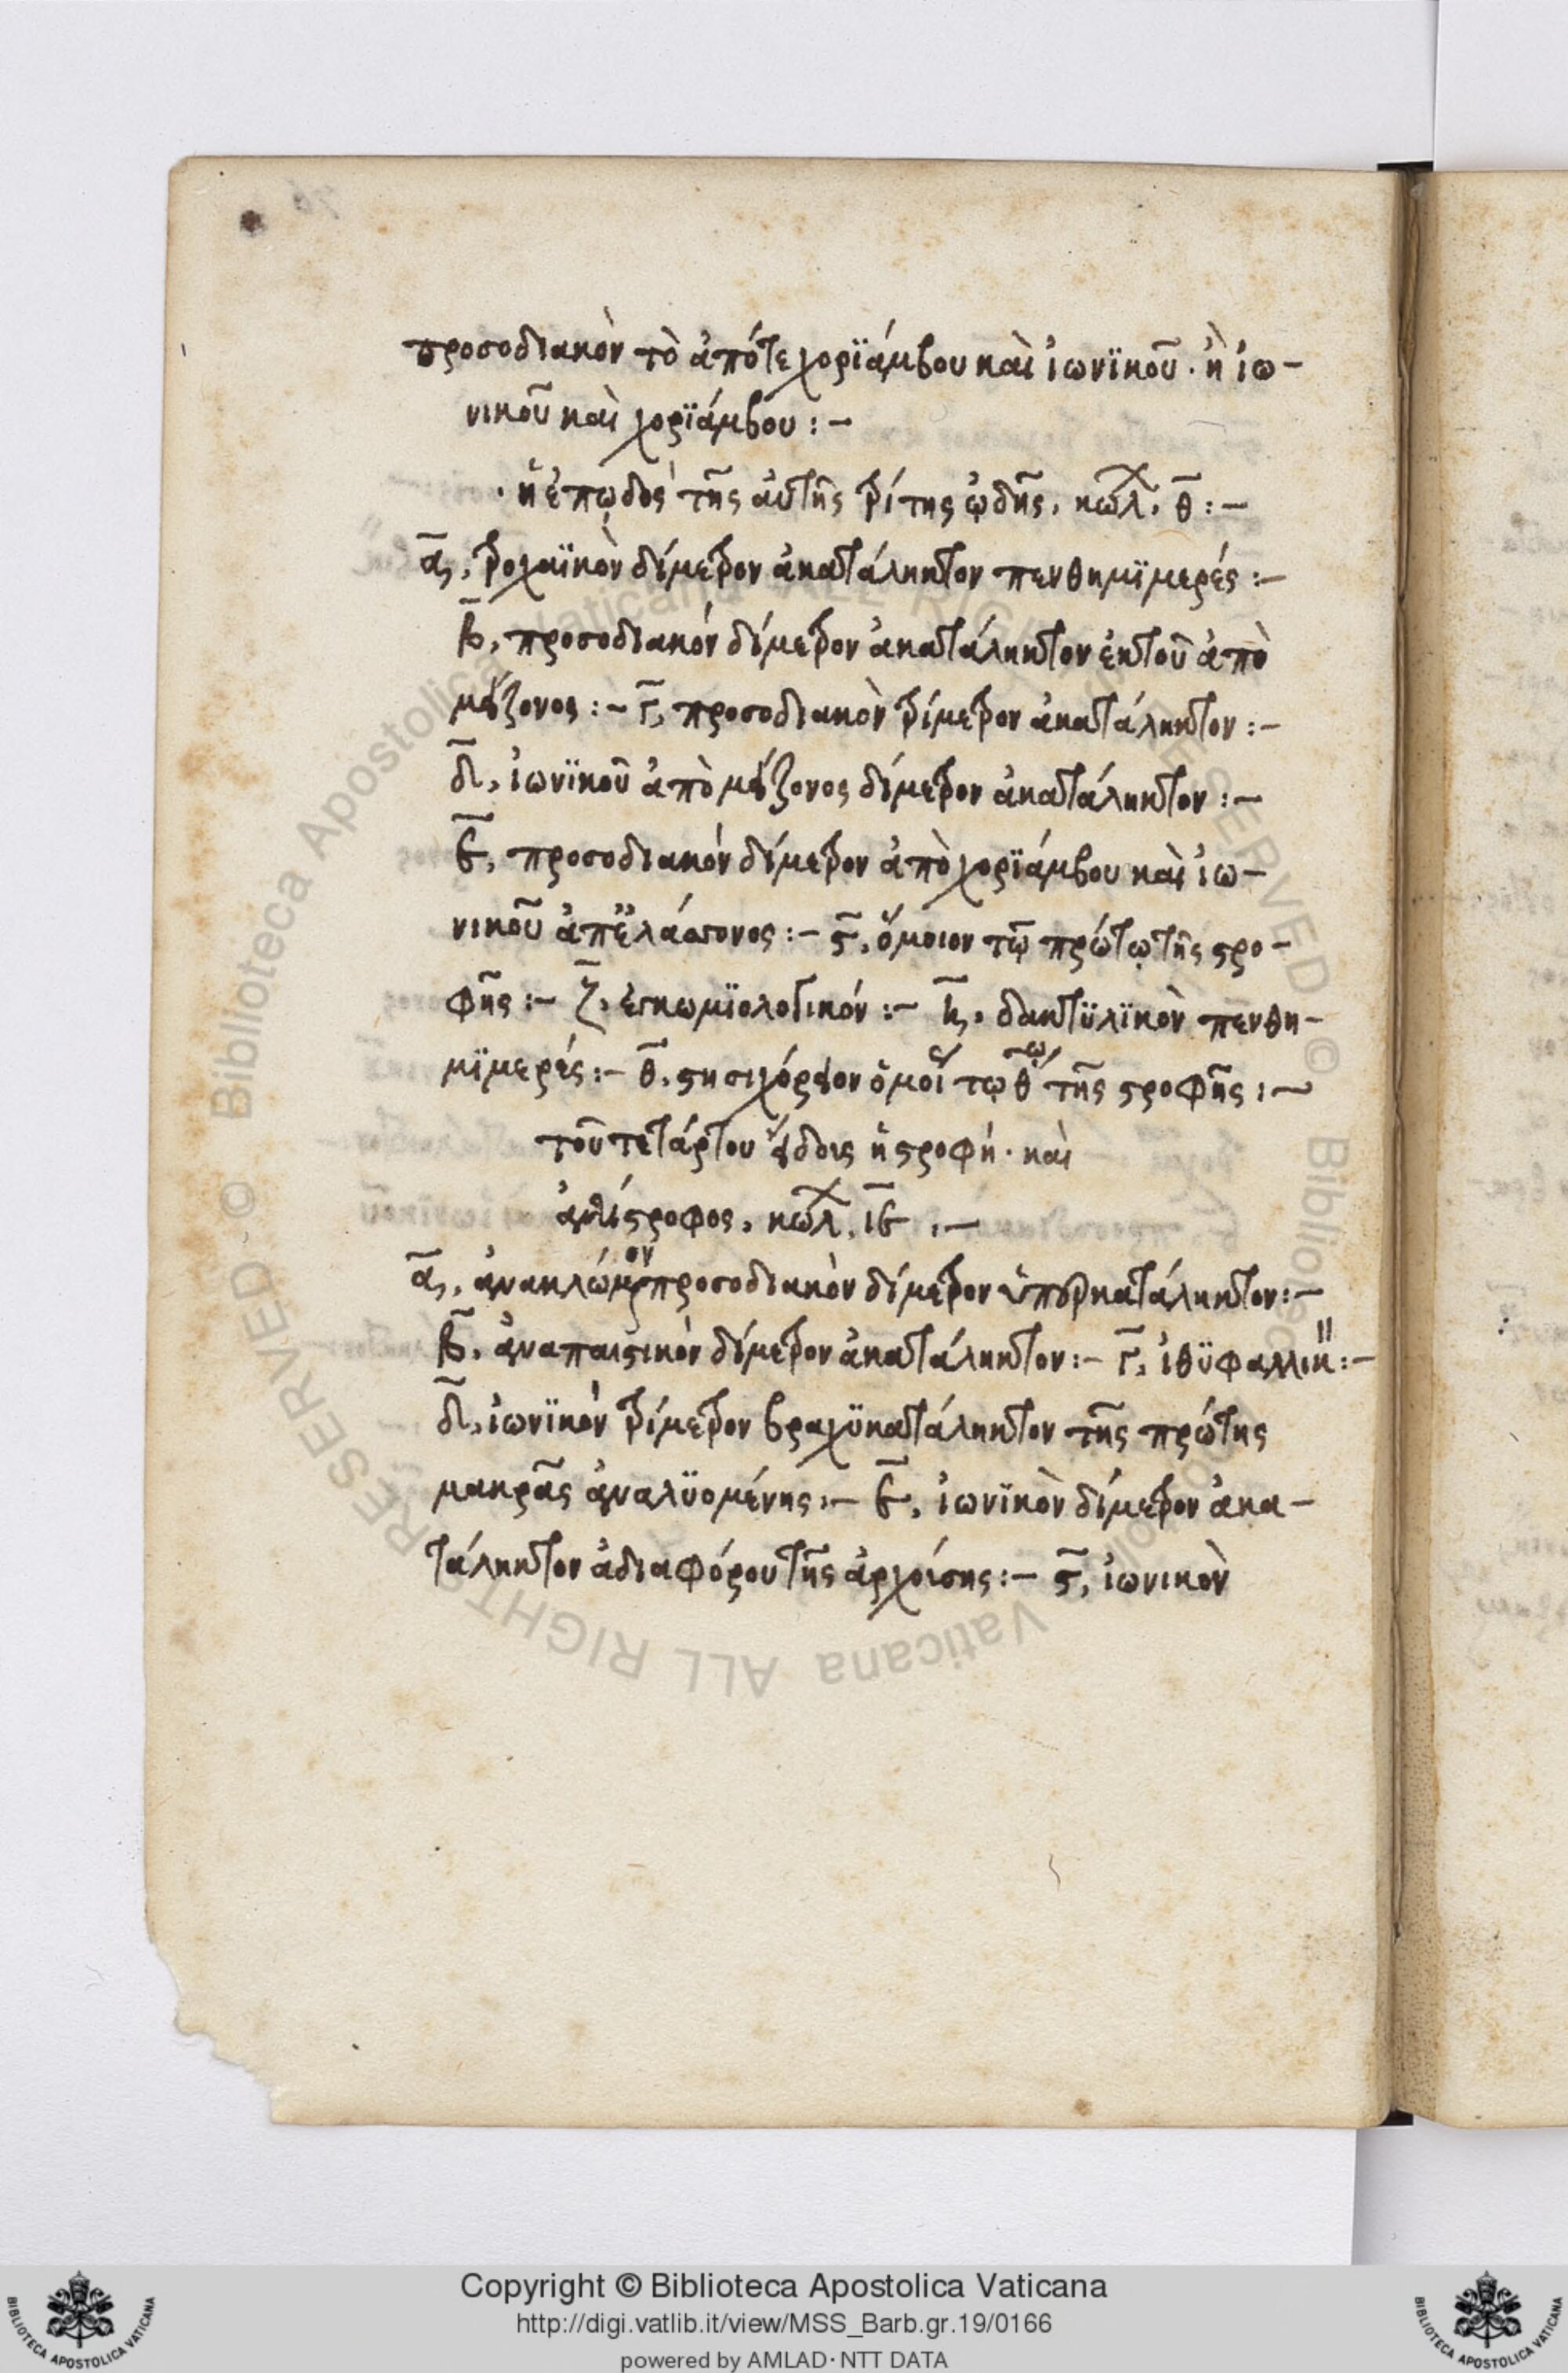 προσοδιακὸν τὸ ἀπό τε χορϊάμβου καὶ ἰωνϊκοῦ· ἢ ἰω-
νικοῦ καὶ χορϊάμβου :-
· ἡ ἐπῳδὸς τῆς αὐτῆς τρίτης ᾠδῆς, κώλ, θ̄ :-
ᾱ, τροχαϊκὸν δίμετρον ἀκατάληκτον πενθημϊμερές :-
β̄, προσοδιακὸν δίμετρον ἀκατάληκτον ἐκ τοῦ ἀπὸ
μείζονος :- γ̄, προσοδιακὸν τρίμετρον ἀκατάληκτον :-
δ̄, ἰωνϊκοῦ ἀπὸ μείζονος δίμετρον ἀκατάληκτον :-
ε̄, προσοδιακὸν δίμετρον ἀπὸ χορϊάμβου καὶ ἰω-
νικοῦ ἀπ' ἐλάσσονος :- ϛ̄, ὅμοιον τῷ πρώτῳ τῆς στρο-
φῆς :- ζ̄, ἐγκωμϊολογικόν :- η̄, δακτϋλϊκὸν πενθη-
μϊμερές :- θ̄, στησιχόρειον ὅμοι τῷ θ τῆς στροφῆς :-
τοῦ τετάρτου εἴδους ἡ στροφή· καὶ
ἀντίστροφος, κώλ, ιε̄ :-
ᾱ, ἀνακλώμενον προσοδιακὸν δίμετρον ὑπερκατάληκτον :-
β̄, ἀναπαιστικὸν δίμετρον ἀκατάληκτον :- γ̄, ἰθϋφαλλικ :-
δ̄, ἰωνϊκὸν τρίμετρον βραχϋκατάληκτον τῆς πρώτης
μακρᾶς ἀναλϋομένης :- ε̄, ἰωνϊκὸν δίμετρον ἀκα-
τάληκτον ἀδιαφόρου τῆς ἀρχούσης :- ϛ̄, ἰωνικὸν
Biblioteca Apostolica Vaticana ALL RIGHTS RESERVED ©
Copyright © Biblioteca Apostolica Vaticana
http://digi.vatlib.it/view/MSS_Barb.gr.19/0166
powered by AMLAD · NTT DATA
BIBLIOTECA APOSTOLICA VATICANA
BIBLIOTECA APOSTOLICA VATICANA